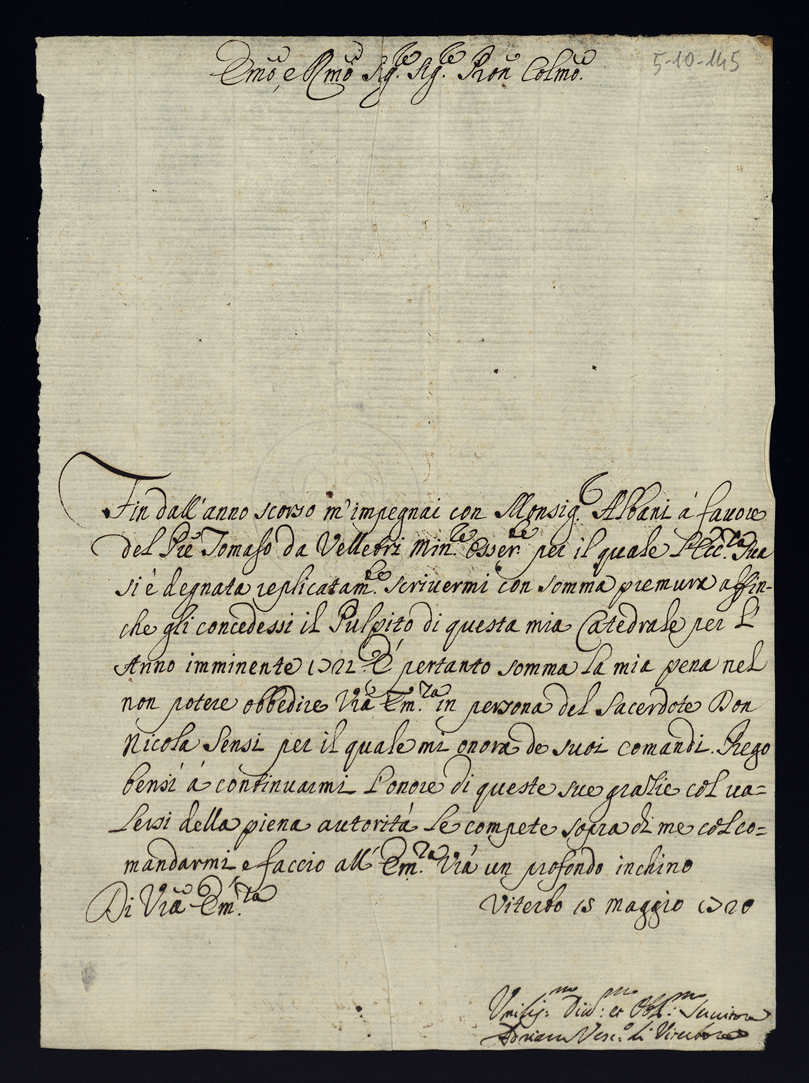 Emo, e Rmo Sigre Sigre Pron Colmo
5-10-145
Fin dall'anno scorso m'impegnai con Monsigre Albani á favore
del Pre Tomaso da Velletri Minre Osserte per il quale l'Eccza Sua
si è degnata replicatamte scrivermi con somma premura affin-
che gli concedessi il Pulpito di questa mia Catedrale per l'
Anno imminente 1722 E' pertanto somma la mia pena nel
non potere obbedire Vra Emza in persona del Sacerdote Don
Nicola Sensi per il quale mi onora de suoi comandi. Prego
bensì á continuarmi l'onore di queste sue grazie col va=
lersi della piena autoritá le compete sopra di me col co=
mandarmi e faccio all' Emza Vra un profondo inchino
Di Vra Emza
Viterbo 15 maggio 1720
Umilismo Divmo et Oblmo Servitore
Adriano Vesco di Viterbo